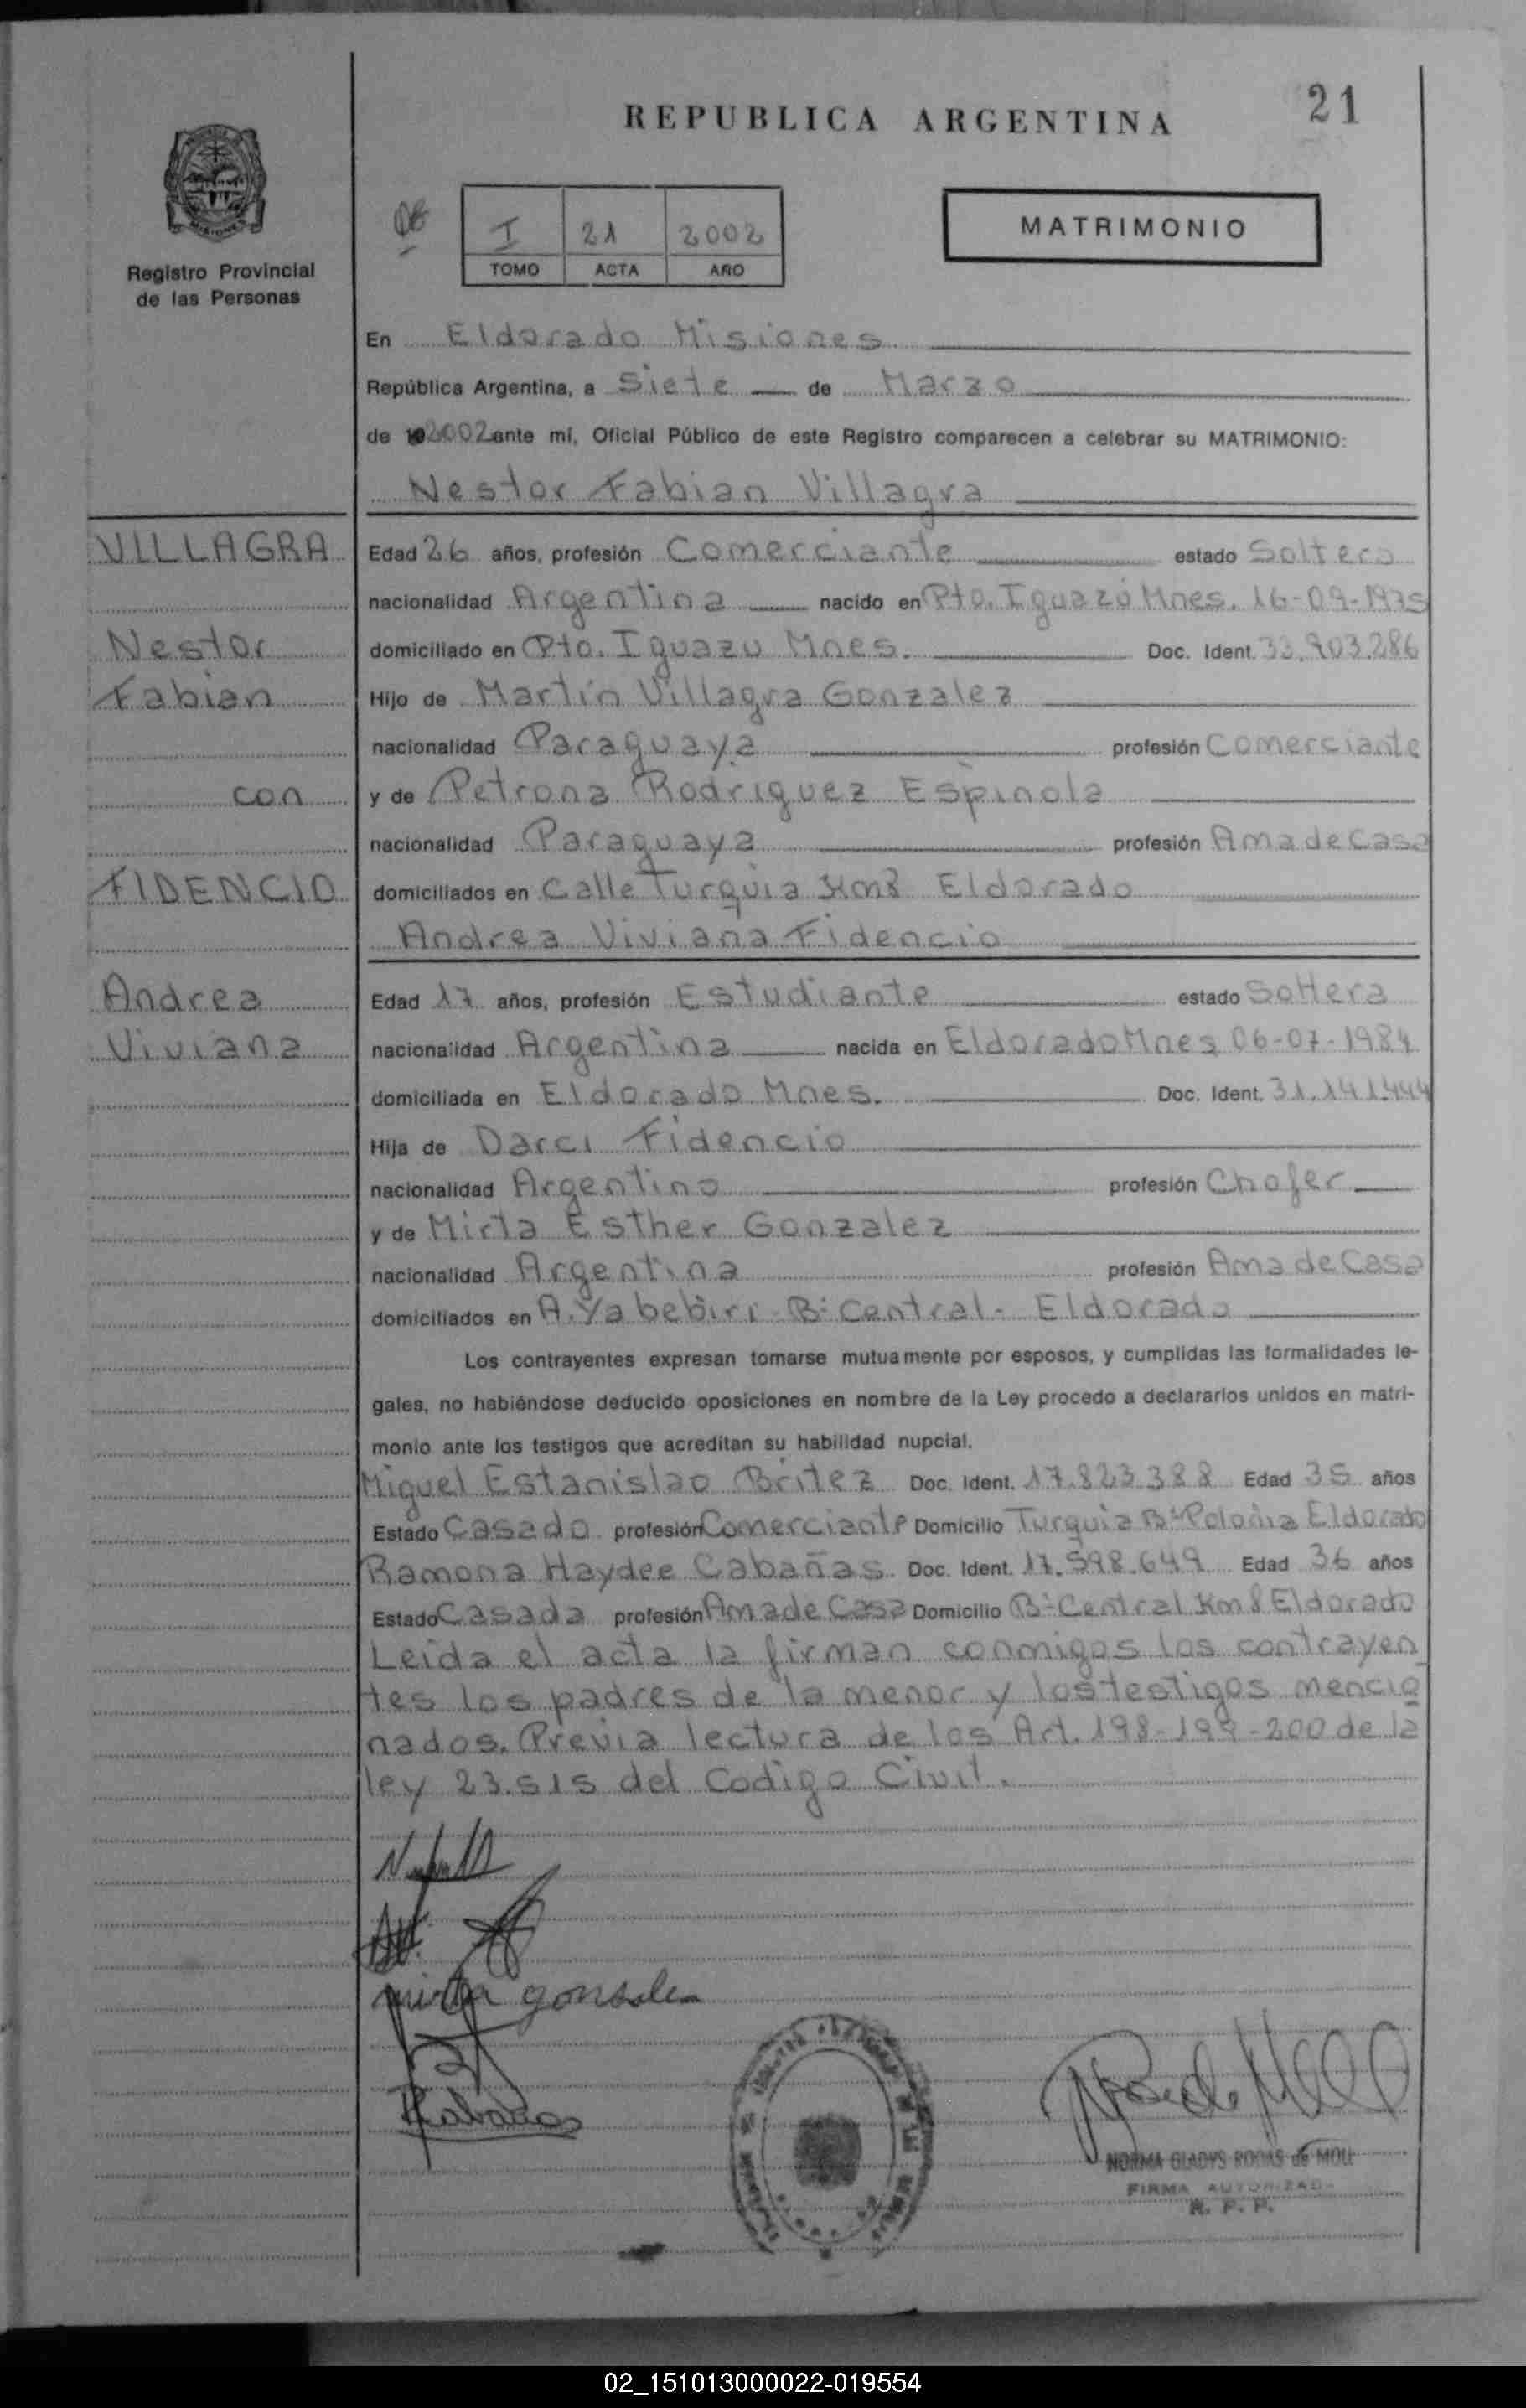 REPUBLICA ARGENTINA
21
Registro Provincial
de las Personas
I 21 2002
TOMO ACTA AÑO
MATRIMONIO
En Eldorado Misiones
República Argentina, a Siete de Marzo
de 2002 ante mí, Oficial Público de este Registro comparecen a celebrar su MATRIMONIO:
Nestor Fabian Villagra
VILLAGRA
Nestor
Fabian
con
FIDENCIO
Andrea
Viviana
Edad 26 años, profesión Comerciante estado Soltero
nacionalidad Argentina nacido en Pto. Iguazú Mnes. 16-09-1975
domiciliado en Pto. Iguazu Mnes. Doc. Ident. 33.903.286
Hijo de Martín Villagra Gonzalez
nacionalidad Paraguaya profesión Comerciante
y de Petrona Rodriguez Espinola
nacionalidad Paraguaya profesión Ama de Casa
domiciliados en Calle Turquia Km8 Eldorado
Andrea Viviana Fidencio
Edad 17 años, profesión Estudiante estado Soltera
nacionalidad Argentina nacida en Eldorado Mnes 06-07-1984
domiciliada en Eldorado Mnes. Doc. Ident. 31.141.444
Hija de Darci Fidencio
nacionalidad Argentino profesión Chofer
y de Mirta Esther Gonzalez
nacionalidad Argentina profesión Ama de Casa
domiciliados en A. Yabebiri B: Central - Eldorado
Los contrayentes expresan tomarse mutuamente por esposos, y cumplidas las formalidades le-
gales, no habiéndose deducido oposiciones en nombre de la Ley procedo a declararlos unidos en matri-
monio ante los testigos que acreditan su habilidad nupcial.
Miguel Estanislao Britez Doc. Ident. 17.823.388 Edad 35 años
Estado Casado profesión Comerciante Domicilio Turquia B: Polonia Eldorado
Ramona Haydee Cabañas Doc. Ident. 17.598.649 Edad 36 años
Estado Casada profesión Ama de Casa Domicilio B: Central Km 8 Eldorado
Leida el acta la firman conmigos los contrayen
tes los padres de la menor y los testigos mencio
nados. Previa lectura de los Art. 198-199-200 de la
ley 23.515 del Codigo Civil.
mirta gonsale
NORMA GLADYS RODAS de MOLL
FIRMA AUTORIZADA
R. P. P.
02_151013000022-019554